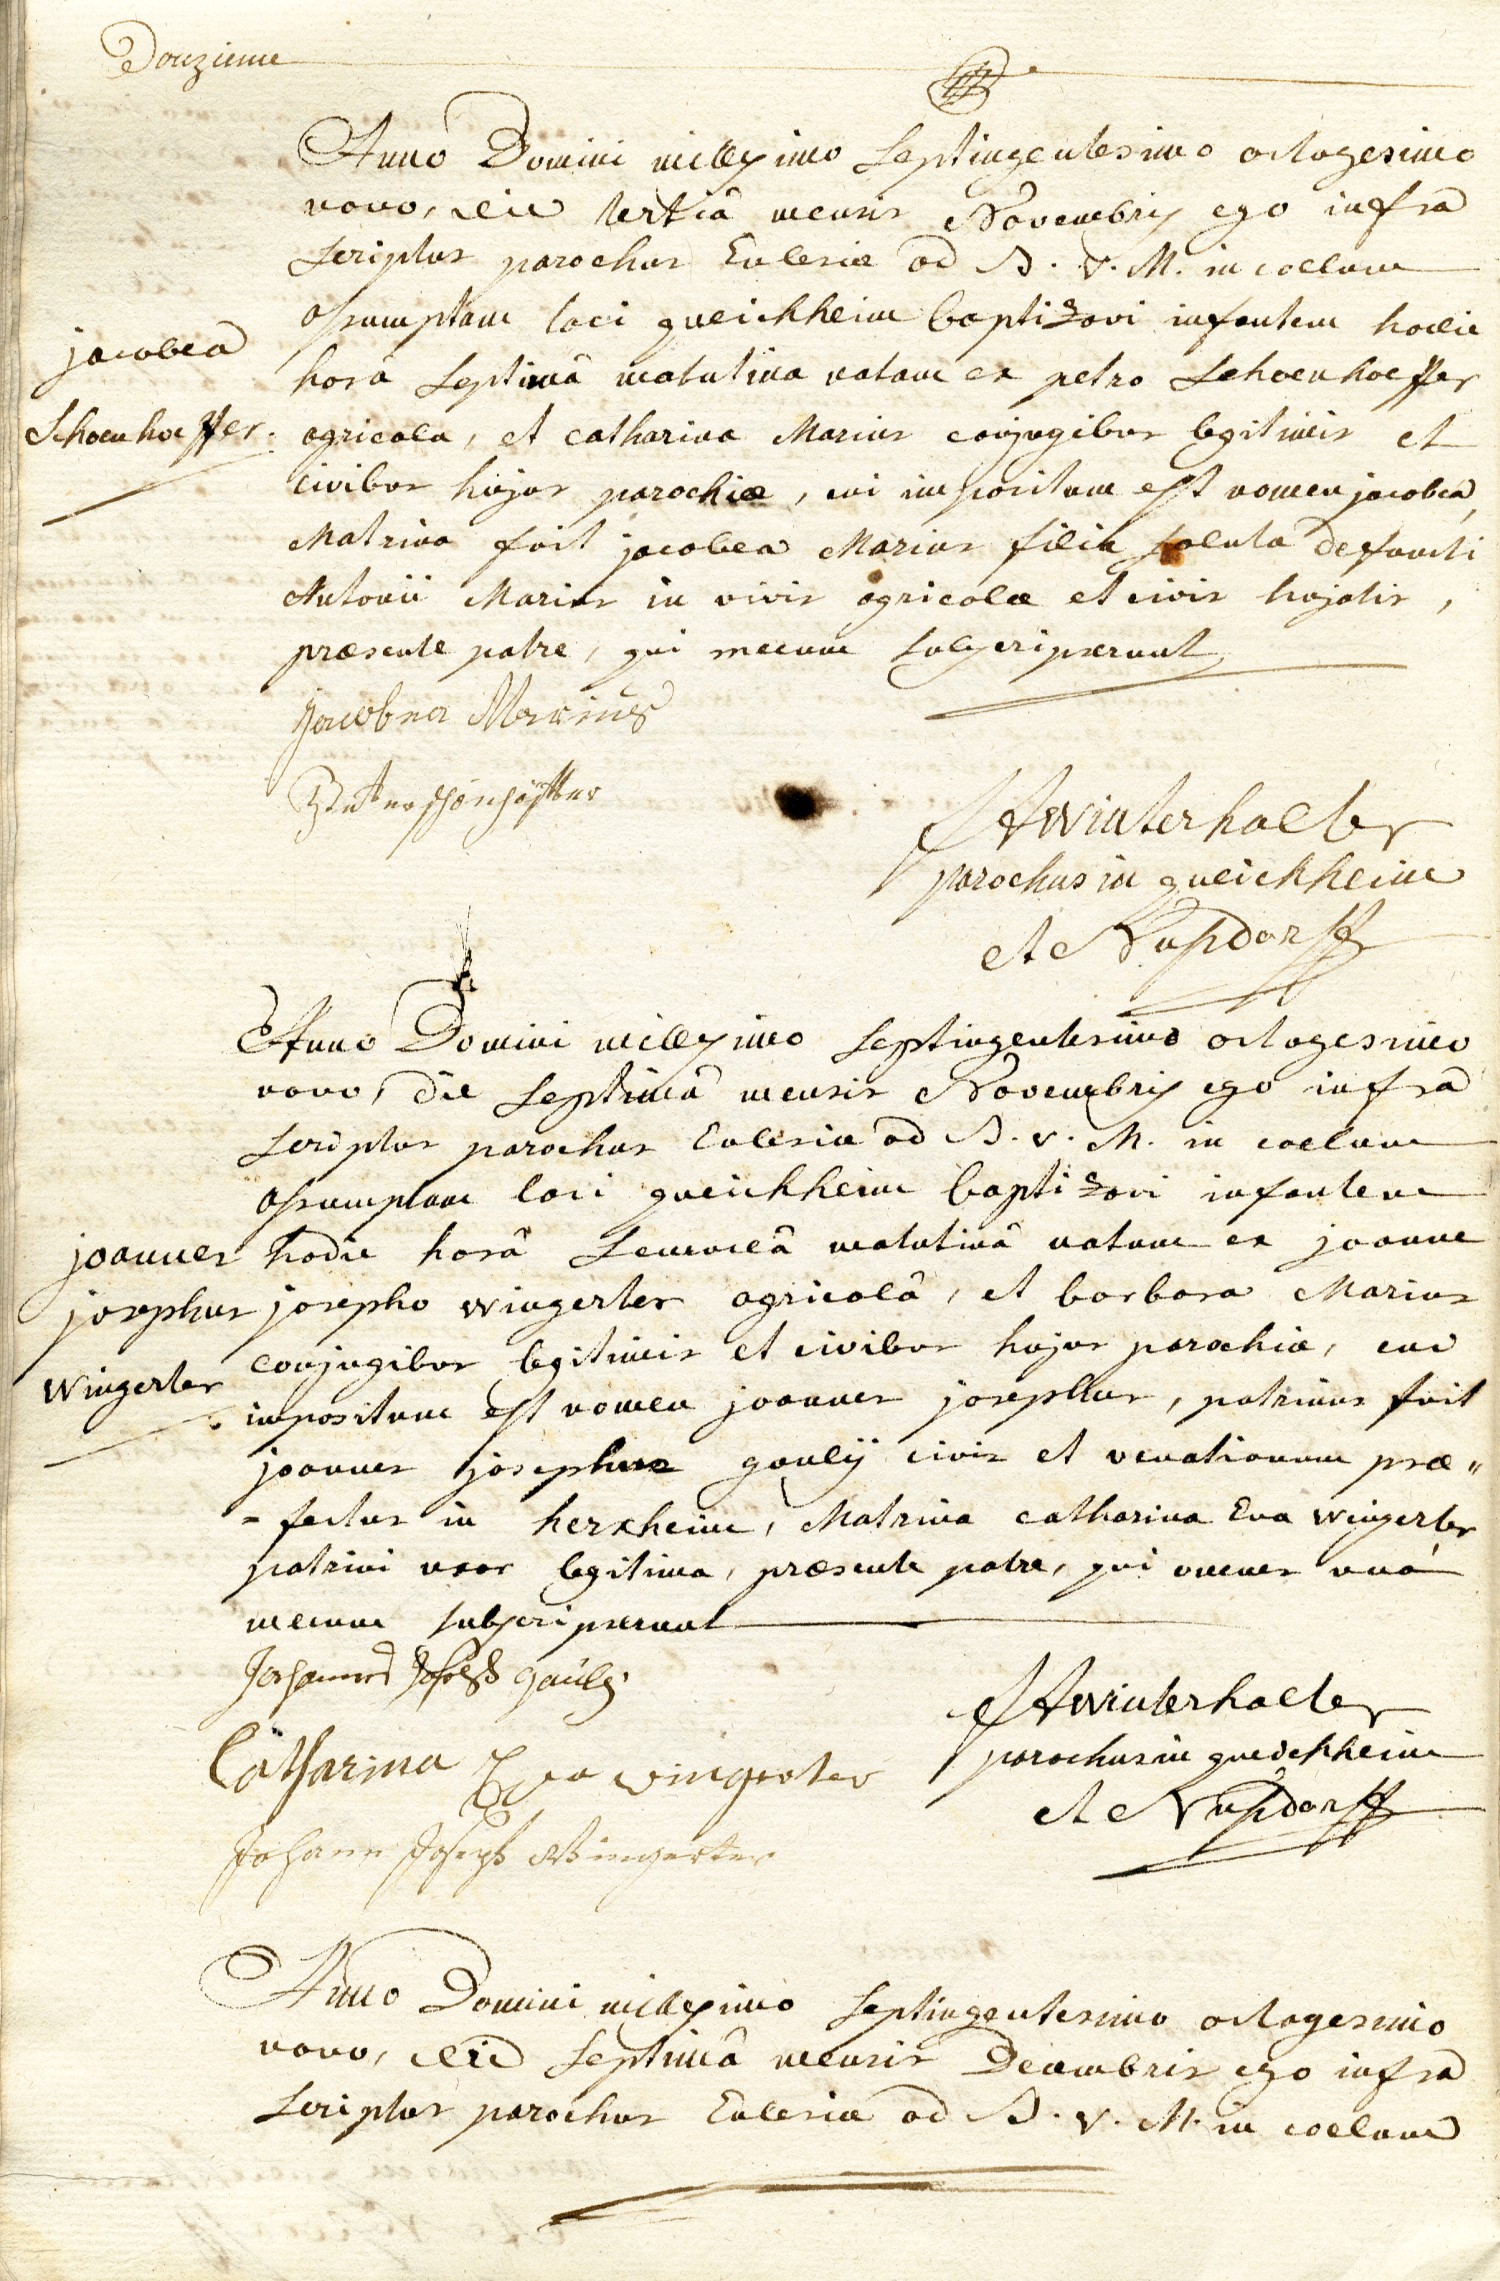 Douzieme
Anno Domini millesimo Septingentesimo octogesimo
nono, die tertiâ mensis Novembris ego infra
Scriptus parochus Ecclesiæ ad B. V. M. in coelum
assumptam loci queichheim baptizavi infantem hodie
jacobea
horâ Septimâ matutina natam ex petro Schoenhoeffer
Schoenhoeffer.
agricola, et catharina Marius conjugibus legitimis et
civibus hujus parochiæ, cui impositum est nomen jacobea,
Matrina fuit jacobea Marius filia soluta defuncti
Antonii Marius in vivis agricolæ et civis hujatis,
præsente patre, qui mecum subscripserunt
Jacobea Marius
Peter schönhöffer
JA Winterhalter
parochus in queichheim
et Nussdorff
Anno Domini millesimo Septingentesimo octogesimo
nono, die Septimâ mensis Novembris ego infra
Scriptus parochus Ecclesiæ ad B. V. M. in coelum
assumptam loci queichheim baptizavi infantem
joannes
hodie horâ Secundâ matutinâ natum ex joanne
josephus
josepho Wingerter agricolâ, et barbara Marius
conjugibus legitimis et civibus hujus parochiæ, cui
Wingerter
impositum est nomen joannes josephus, patrinus fuit
joannes josephus gauly civis et venationum præ„
= fectus in herxheim, Matrina catharina Eva Wingerter
patrini uxor legitima, præsente patre, qui omnes unâ
mecum subscripserunt
Johannes Joseph Gauly
Catharina Eva wingerter
Johann Joseph Wingerter
JA Winterhalter
parochus in queichheim
et Nussdorff
Anno Domini millesimo Septingentesimo octogesimo
nono, die Septimâ mensis Decembris ego infra
Scriptus parochus Ecclesiæ ad B. V. M. in coelum